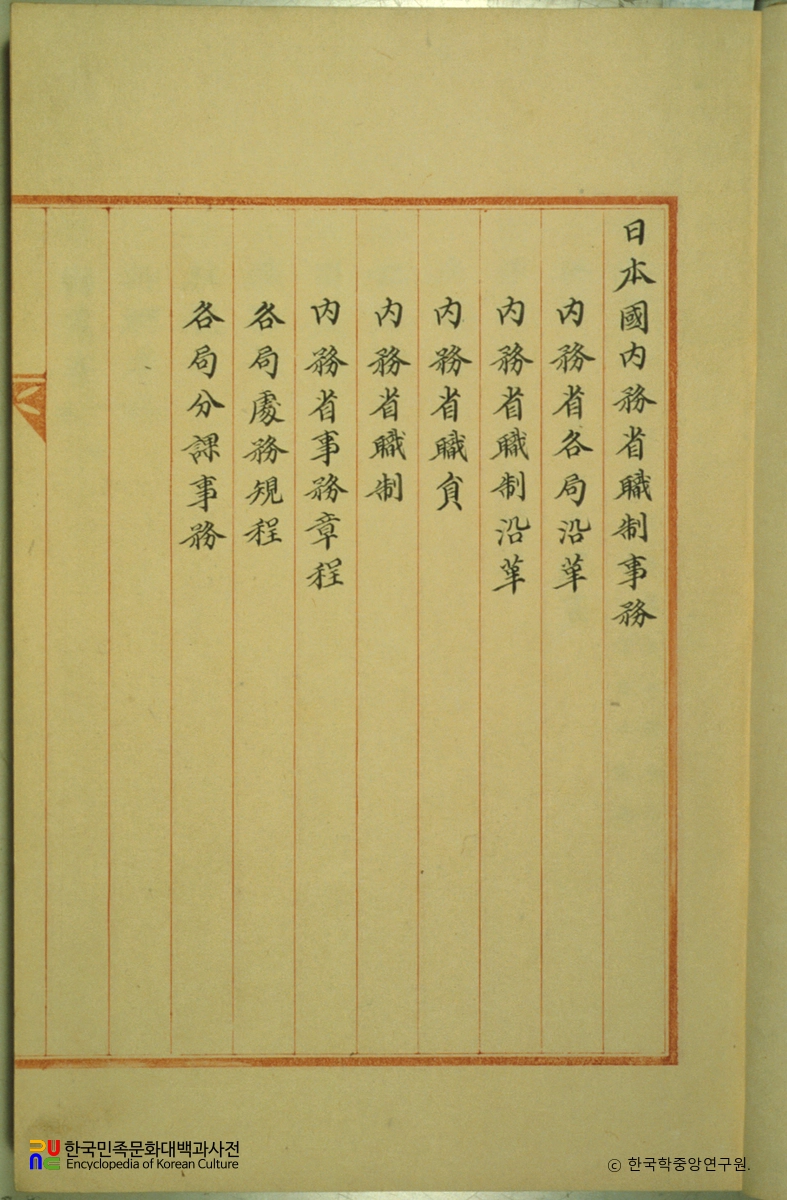 日本國内務省職制事務
内務省各局沿革
内務省職制沿革
内務省職員
内務省職制
内務省事務章程
各局處務規程
各局分課事務
한국민족문화대백과사전
Encyclopedia of Korean Culture
ⓒ 한국학중앙연구원.